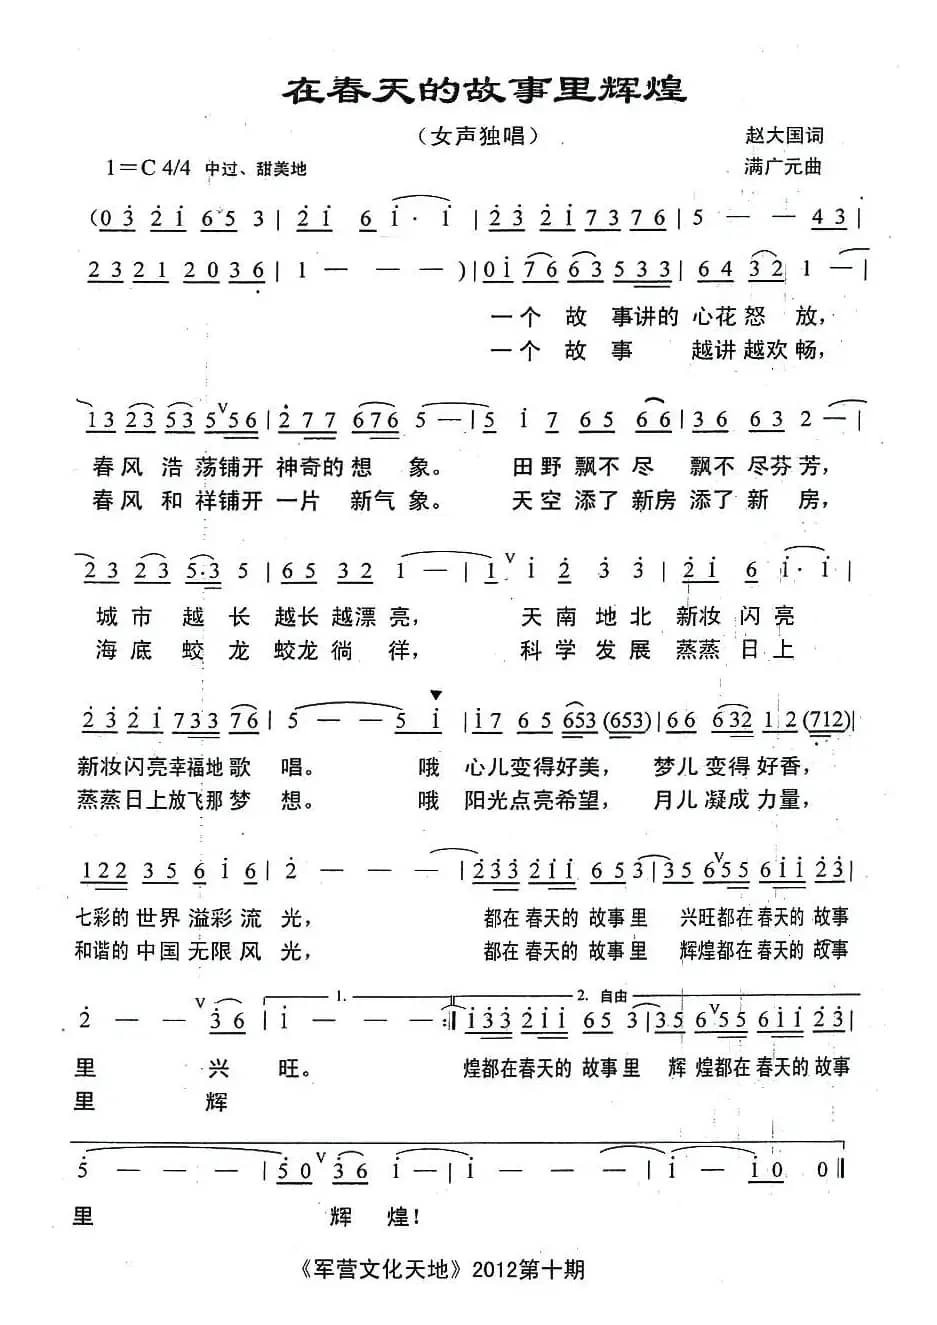 在春天的故事里辉煌
（女声独唱）
赵大国词
1＝C 4/4 中过、甜美地
满广元曲
(0 3 2 1 6 5 3 | 2 1 6 1 · 1 | 2 3 2 1 7 3 7 6 | 5 — — 4 3 |
2 3 2 1 2 0 3 6 | 1 — — — ) | 0 1 7 6 6 3 5 3 3 | 6 4 3 2 1 — |
一个 故 事讲的 心花 怒 放，
一个 故 事 越讲 越欢 畅，
1 3 2 3 5 3 5 V 5 5 6 | 2 7 7 6 7 6 5 — | 5 1 7 6 5 6 6 | 3 6 6 3 2 — |
春风 浩 荡铺开 神奇的 想 象。 田野 飘不 尽 飘不 尽芬 芳，
春风 和 祥铺开 一片 新气 象。 天空 添了 新房 添了 新 房，
2 3 2 3 5 · 3 5 | 6 5 3 2 1 — | 1 V 1 2 3 3 | 2 1 6 1 · 1 |
城市 越 长 越长 越漂 亮， 天南 地北 新妆 闪亮
海底 蛟 龙 蛟龙 徜 徉， 科学 发展 蒸蒸 日上
2 3 2 1 7 3 3 7 6 | 5 — — 5 1 | 1 7 6 5 6 5 3 (6 5 3) | 6 6 6 3 2 1 2 (7 1 2) |
新妆闪亮幸福地 歌 唱。 哦 心儿变得好美， 梦儿 变得 好香，
蒸蒸日上放飞那 梦 想。 哦 阳光点亮希望， 月儿 凝成 力量，
1 2 2 3 5 6 1 6 | 2 — — — | 2 3 3 2 1 1 6 5 3 | 3 5 6 V 5 5 6 1 1 2 3 |
七彩的 世界 溢彩 流 光， 都在 春天的 故事 里 兴旺都在 春天的 故事
和谐的 中国 无限 风 光， 都在 春天的 故事 里 辉煌都在 春天的 故事
1. 2. 自由
2 — — V 3 6 | 1 — — — :‖ 1 3 3 2 1 1 6 5 3 | 3 5 6 V 5 5 6 1 1 2 3 |
里 兴 旺。 煌都在春天的 故事 里 辉 煌都在 春天的 故事
里 辉
5 — — — | 5 0 V 3 6 1 — | 1 — — — | — — 1 0 0 ‖
里 辉 煌！
《军营文化天地》2012第十期